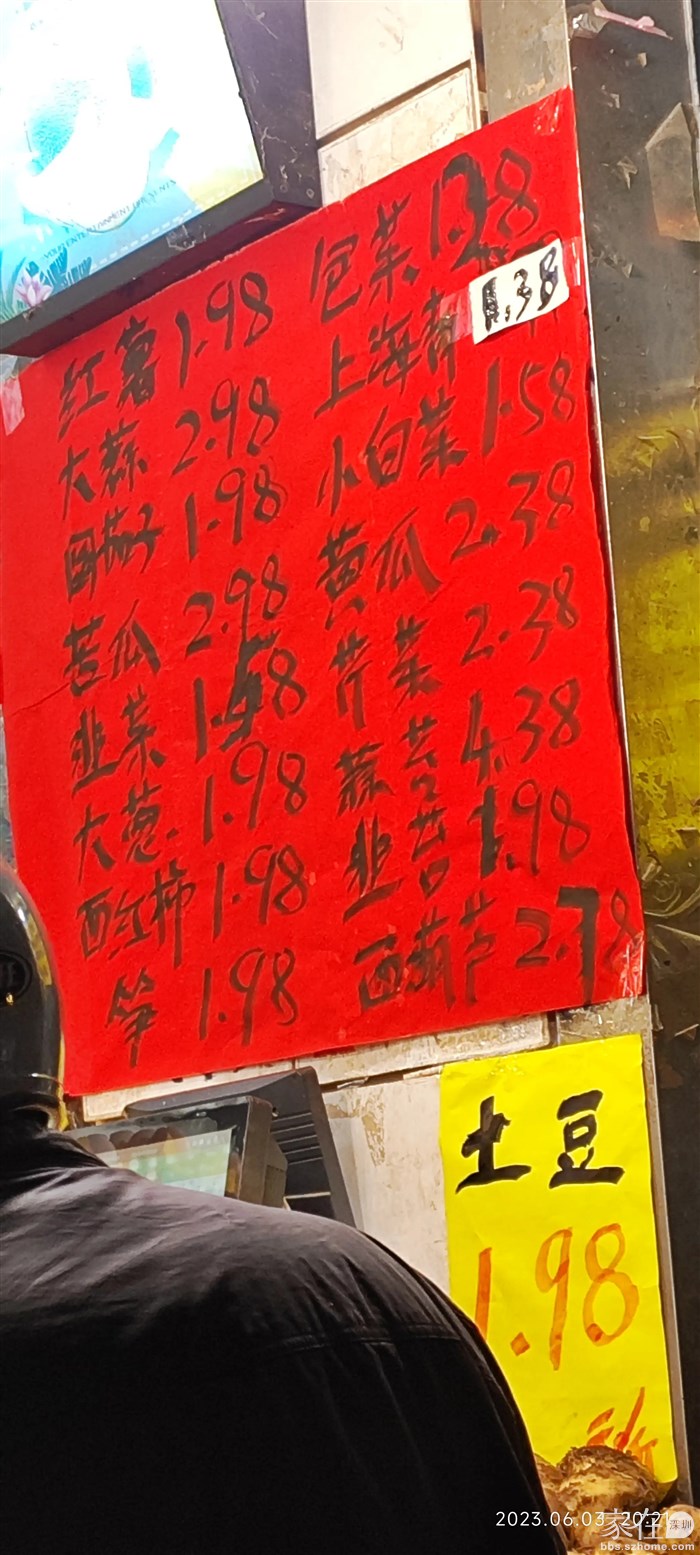 红薯 1.98
大蒜 2.98
园茄子 1.98
苦瓜 2.98
韭菜 1.58
大葱 1.98
西红柿 1.98
笋 1.98
包菜 1.28
上海青 1.38
小白菜 1.58
黄瓜 2.38
芹菜 2.38
蒜苔 4.38
韭苔 1.98
西葫芦 2.78
土豆
1.98
2023.06.03 20:21
家在深圳
bbs.szhome.com